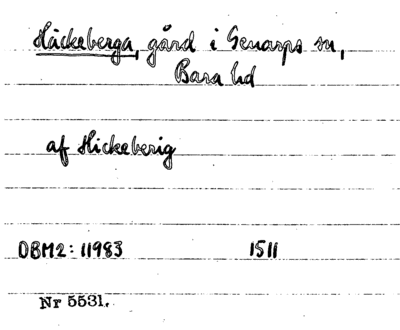 Häckeberga, gård i Genarps sn,
Bara hd
af Hickeberig
DBM2: 11983 1511
Nr 5531.